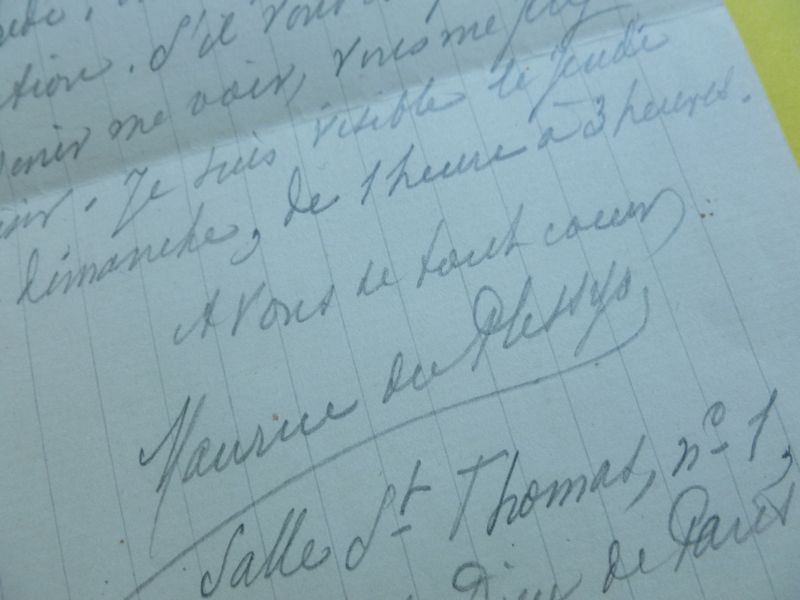 ation. S'il vous
venir me voir, vous me
Je suis visible le jeudi
dimanche, de 1 heure à 3 heures.
A vous de tout cœur
Maurice du Plessys
Salle St Thomas, nº 1,
Dieu de Paris